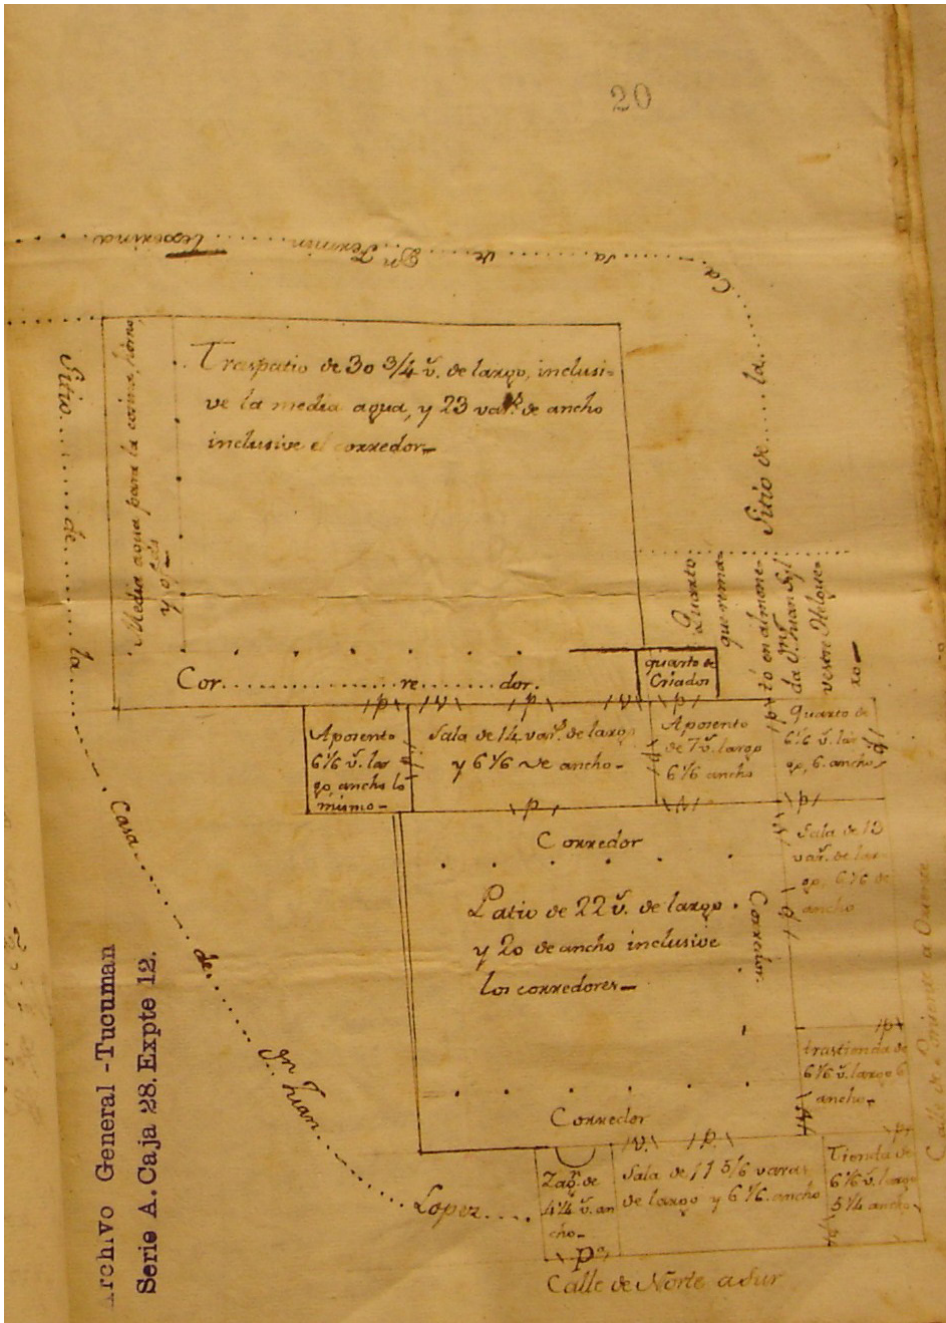 20
Ca.....sa.....de.....Dn Fermin.....Texerina
Sitio de.....la.....
Sitio.....de.....la.....Casa.....de.....Dn Juan.....Lopez....
Media agua para la cocina, horno
y
Traspatio de 30 3/4 v. de largo, inclusi=
ve la media agua, y 23 vars. de ancho
inclusive el corredor=
Cor.....re.....dor.
Quarto
que rema=
tó en almone=
da Dn. Juan Syl
vestre
quarto de
Criados
Aposento
6 1/6 v. lar
go, ancho lo
mismo=
Sala de 14 vars. de largo
y 6 1/6 de ancho=
Aposento
de 7 v. largo
6 1/6 ancho
Quarto de
6 1/6 v. lar
go, 6. ancho
Corredor
Patio de 22 v. de largo
y 20 de ancho inclusive
los corredores=
Corredor.
Sala de
vars. de lar=
go, 6 1/6 de
ancho
trastienda de
6 1/6 v. largo 6
ancho=
Corredor
Zagn. de
4 1/4 v. an
cho=
Sala de 11 5/6 varas
de largo y 6 1/6. ancho
Tienda de
6 1/6 v. largo
5 1/4 ancho
pa
Calle de Norte a Sur
Calle de Oriente a
rchivo General -Tucuman
Serie A. Caja 28. Expte 12.